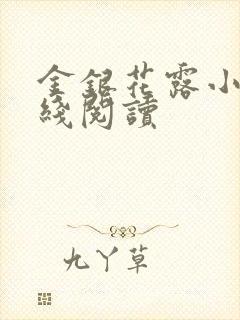 金銀花露小
綫閱讀
九丫草